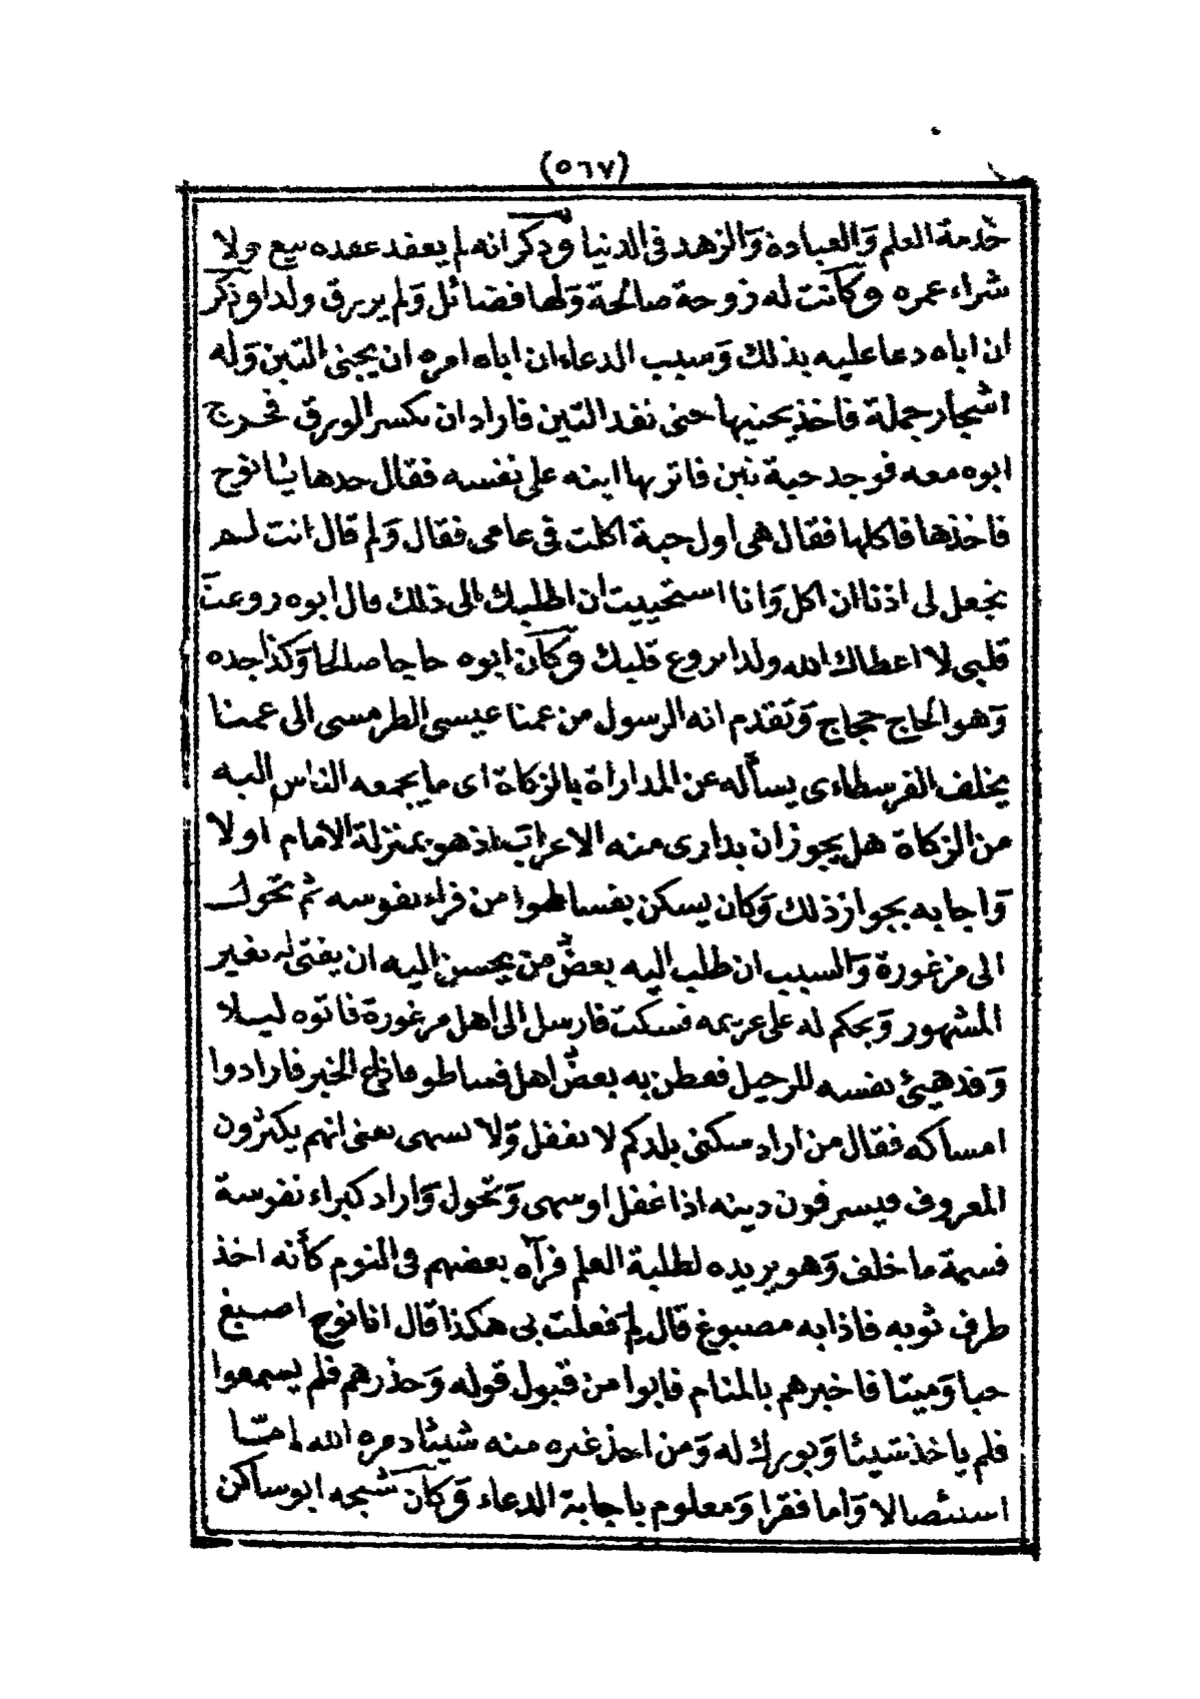 (٥٦٧)
خدمة العلم والعبادة والزهد في الدنيا وذكر انه لم يعقد عقده بيع ولا
شراء عمره وكانت له زوجة صالحة ولها فضائل ولم يرزق ولدا وذكر
ان اباه دعا عليه بذلك وسبب الدعاء ان اباه امره ان يجني التين وله
اشجار جملة فاخذ يجنيها حتى نفد التين فاراد ان يكسر الورق فخرج
ابوه معه فوجد حبة تين فاثر بها ابنه على نفسه فقال خذها يا نوح
فاخذها فاكلها فقال هي اول حبة اكلت في عامي فقال ولم قال انت لم
تجعل لي اذنا ان اكل وانا استحييت ان اطلبك الى ذلك قال ابوه روعت
قلبي لا اعطاك الله ولدا يروع قلبك وكان ابوه حاجا صالحا وكذا جده
وهو الحاج حجاج وتقدم انه الرسول من عمنا عيسى الطرمسي الى عمنا
يخلف الفرسطاءي يسأله عن المداراة بالزكاة اي ما يجمعه الناس اليه
من الزكاة هل يجوز ان يدارى منه الاعراب اذ هو بمنزلة الامام اولا
واجابه بجواز ذلك وكان يسكن بفساطوا من قراء نفوسه ثم تحول
الى مرغورة والسبب ان طلب اليه بعض من يحسن اليه ان يفتى له بغير
المشهور ويحكم له على غريمه فسكت فارسل الى اهل مرغورة فاتوه ليلا
وقد هيئ نفسه للرحيل ففطن به بعض اهل فساطو فاذاع الخبر فارادوا
امساكه فقال من اراد سكنى بلدكم لا يغفل ولا يسهى يعنى انهم يكثرون
المعروف فيسرفون دينه اذا غفل او سهى وتحول واراد كبراء نفوسة
قسمة ما خلف وهو يريده لطلبة العلم فرآه بعضهم في النوم كأنه اخذ
طرف ثوبه فاذا به مصبوغ قال لم فعلت بى هكذا قال انا نوح اصبغ
حيا وميتا فاخبرهم بالمنام فابوا من قبول قوله وحذرهم فلم يسمعوا
فلم ياخذ شيئا وبورك له ومن اخذ غيره منه شيئا دمره الله امتا
استئصالا واما فقرا ومعلوم باجابة الدعاء وكان شيخه ابو ساكن